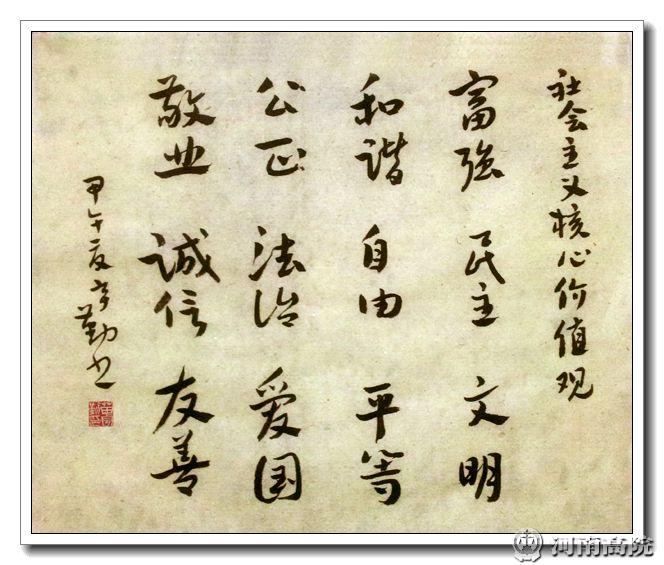 社会主义核心价值观
富强 民主 文明
和谐 自由 平等
公正 法治 爱国
敬业 诚信 友善
甲午夏 勤书
河南高院